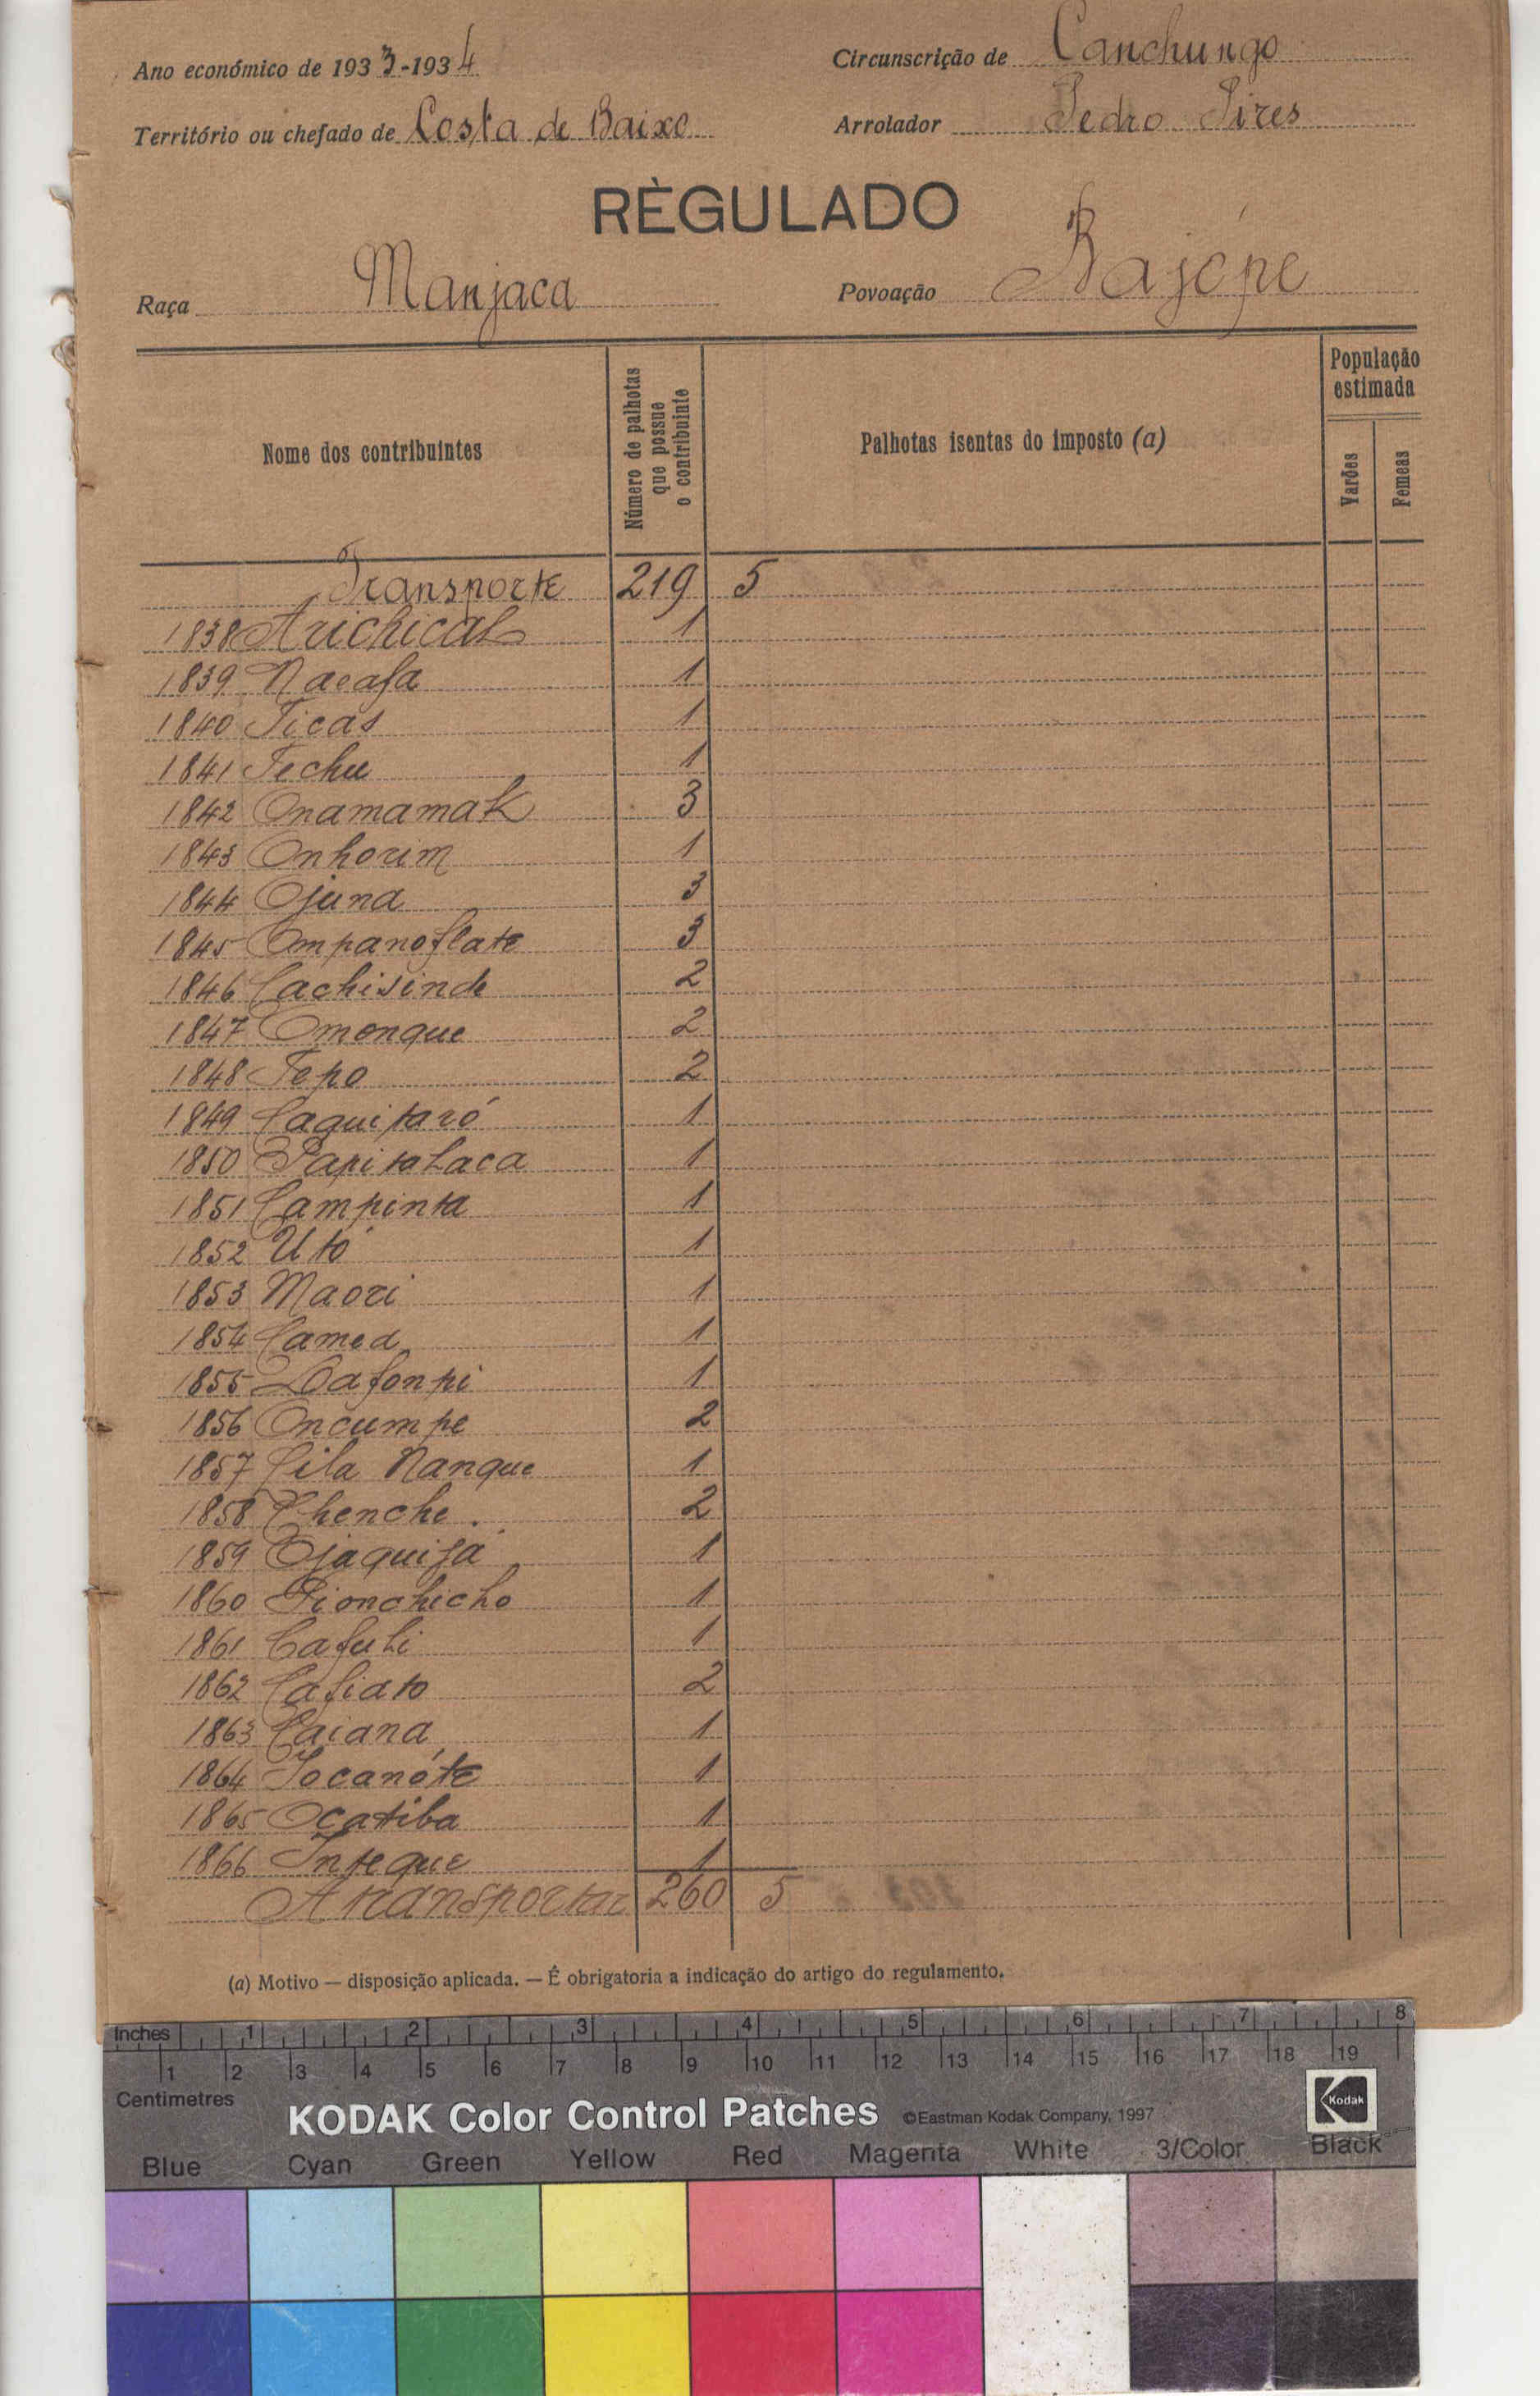 Ano económico de 1933-1934
Circunscrição de Canchungo
Território ou chefado de Costa de Baixo
Arrolador Pedro Pires
RÈGULADO
Raça Manjaca
Povoação Bajópe
Nome dos contribuintes
Número de palhotas que possue o contribuinte
Palhotas isentas do imposto (a)
População estimada
Varões
Femeas
Transporte 219 5
1838 Arichical 1
1839 Nacafa 1
1840 Ticas 1
1841 Techu 1
1842 Onamamak 3
1843 Onhorim 1
1844 Ojuna 3
1845 Ompanoflate 3
1846 Cachisinde 2
1847 Omonque 2
1848 Tepo 2
1849 Caquitaró 1
1850 Papitalaca 1
1851 Campinta 1
1852 Utó 1
1853 Maori 1
1854 Camed 1
1855 Dafonpi 1
1856 Oncumpe 2
1857 Cila Nanque 1
1858 Chenche . 2
1859 Ojaquifa 1
1860 Pionchicho 1
1861 Cafuli 1
1862 Cafiato 2
1863 Caiana 1
1864 Jocanóte 1
1865 Ocatiba 1
1866 Inteque 1
A transportar 260 5
(a) Motivo — disposição aplicada. — É obrigatoria a indicação do artigo do regulamento.
Inches 1 2 3 4 5 6 7 8
1 2 3 4 5 6 7 8 9 10 11 12 13 14 15 16 17 18 19
Centimetres
KODAK Color Control Patches ©Eastman Kodak Company, 1997 Kodak
Blue Cyan Green Yellow Red Magenta White 3/Color Black